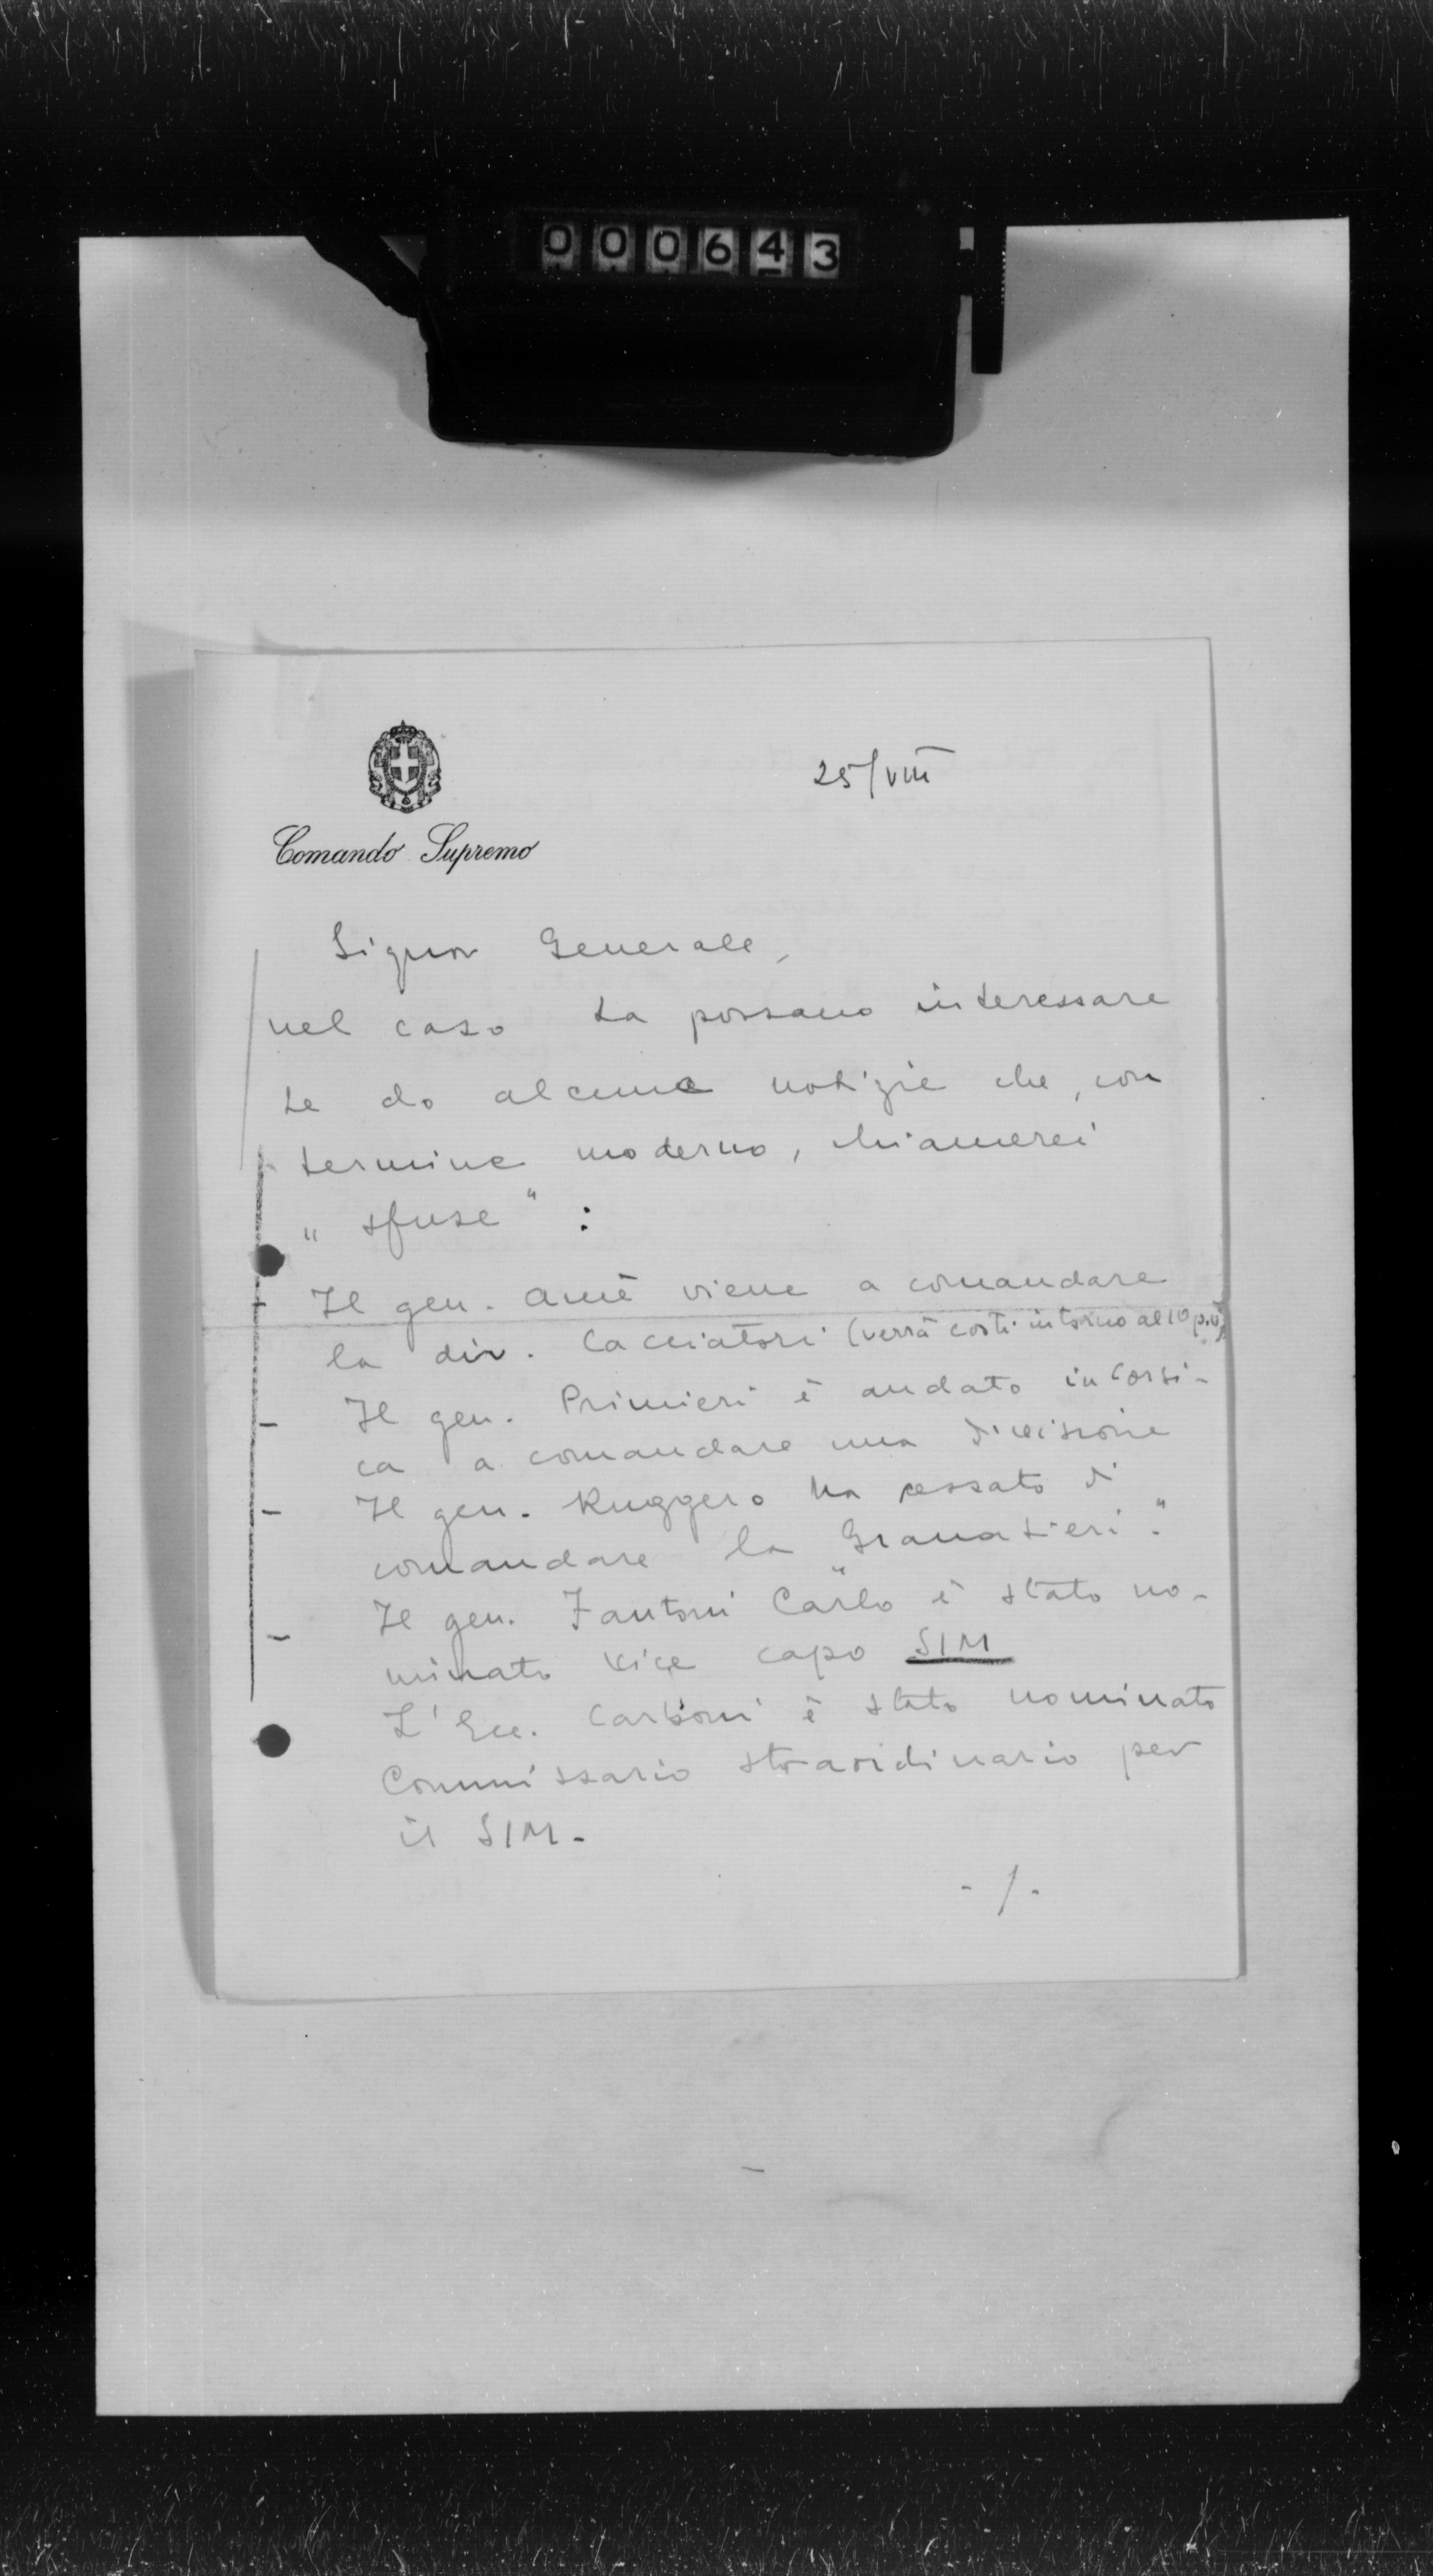 000643
25/VIII
Comando Supremo
Signor Generale,
nel caso La possano interessare
Le do alcune notizie che, con
termine moderno, chiamerei
"sfuse":
Il gen. Amè viene a comandare
la div. Cacciatori (verrà costì intorno al 10 p.v.)
Il gen. Primieri è andato in Corsi-
ca a comandare una divisione
Il gen. Ruggero ha cessato di
comandare la "Granatieri".
Il gen. Fantoni Carlo è stato no-
minato vice capo SIM
L'Ecc. Carboni è stato nominato
Commissario straordinario per
il SIM-
-/-